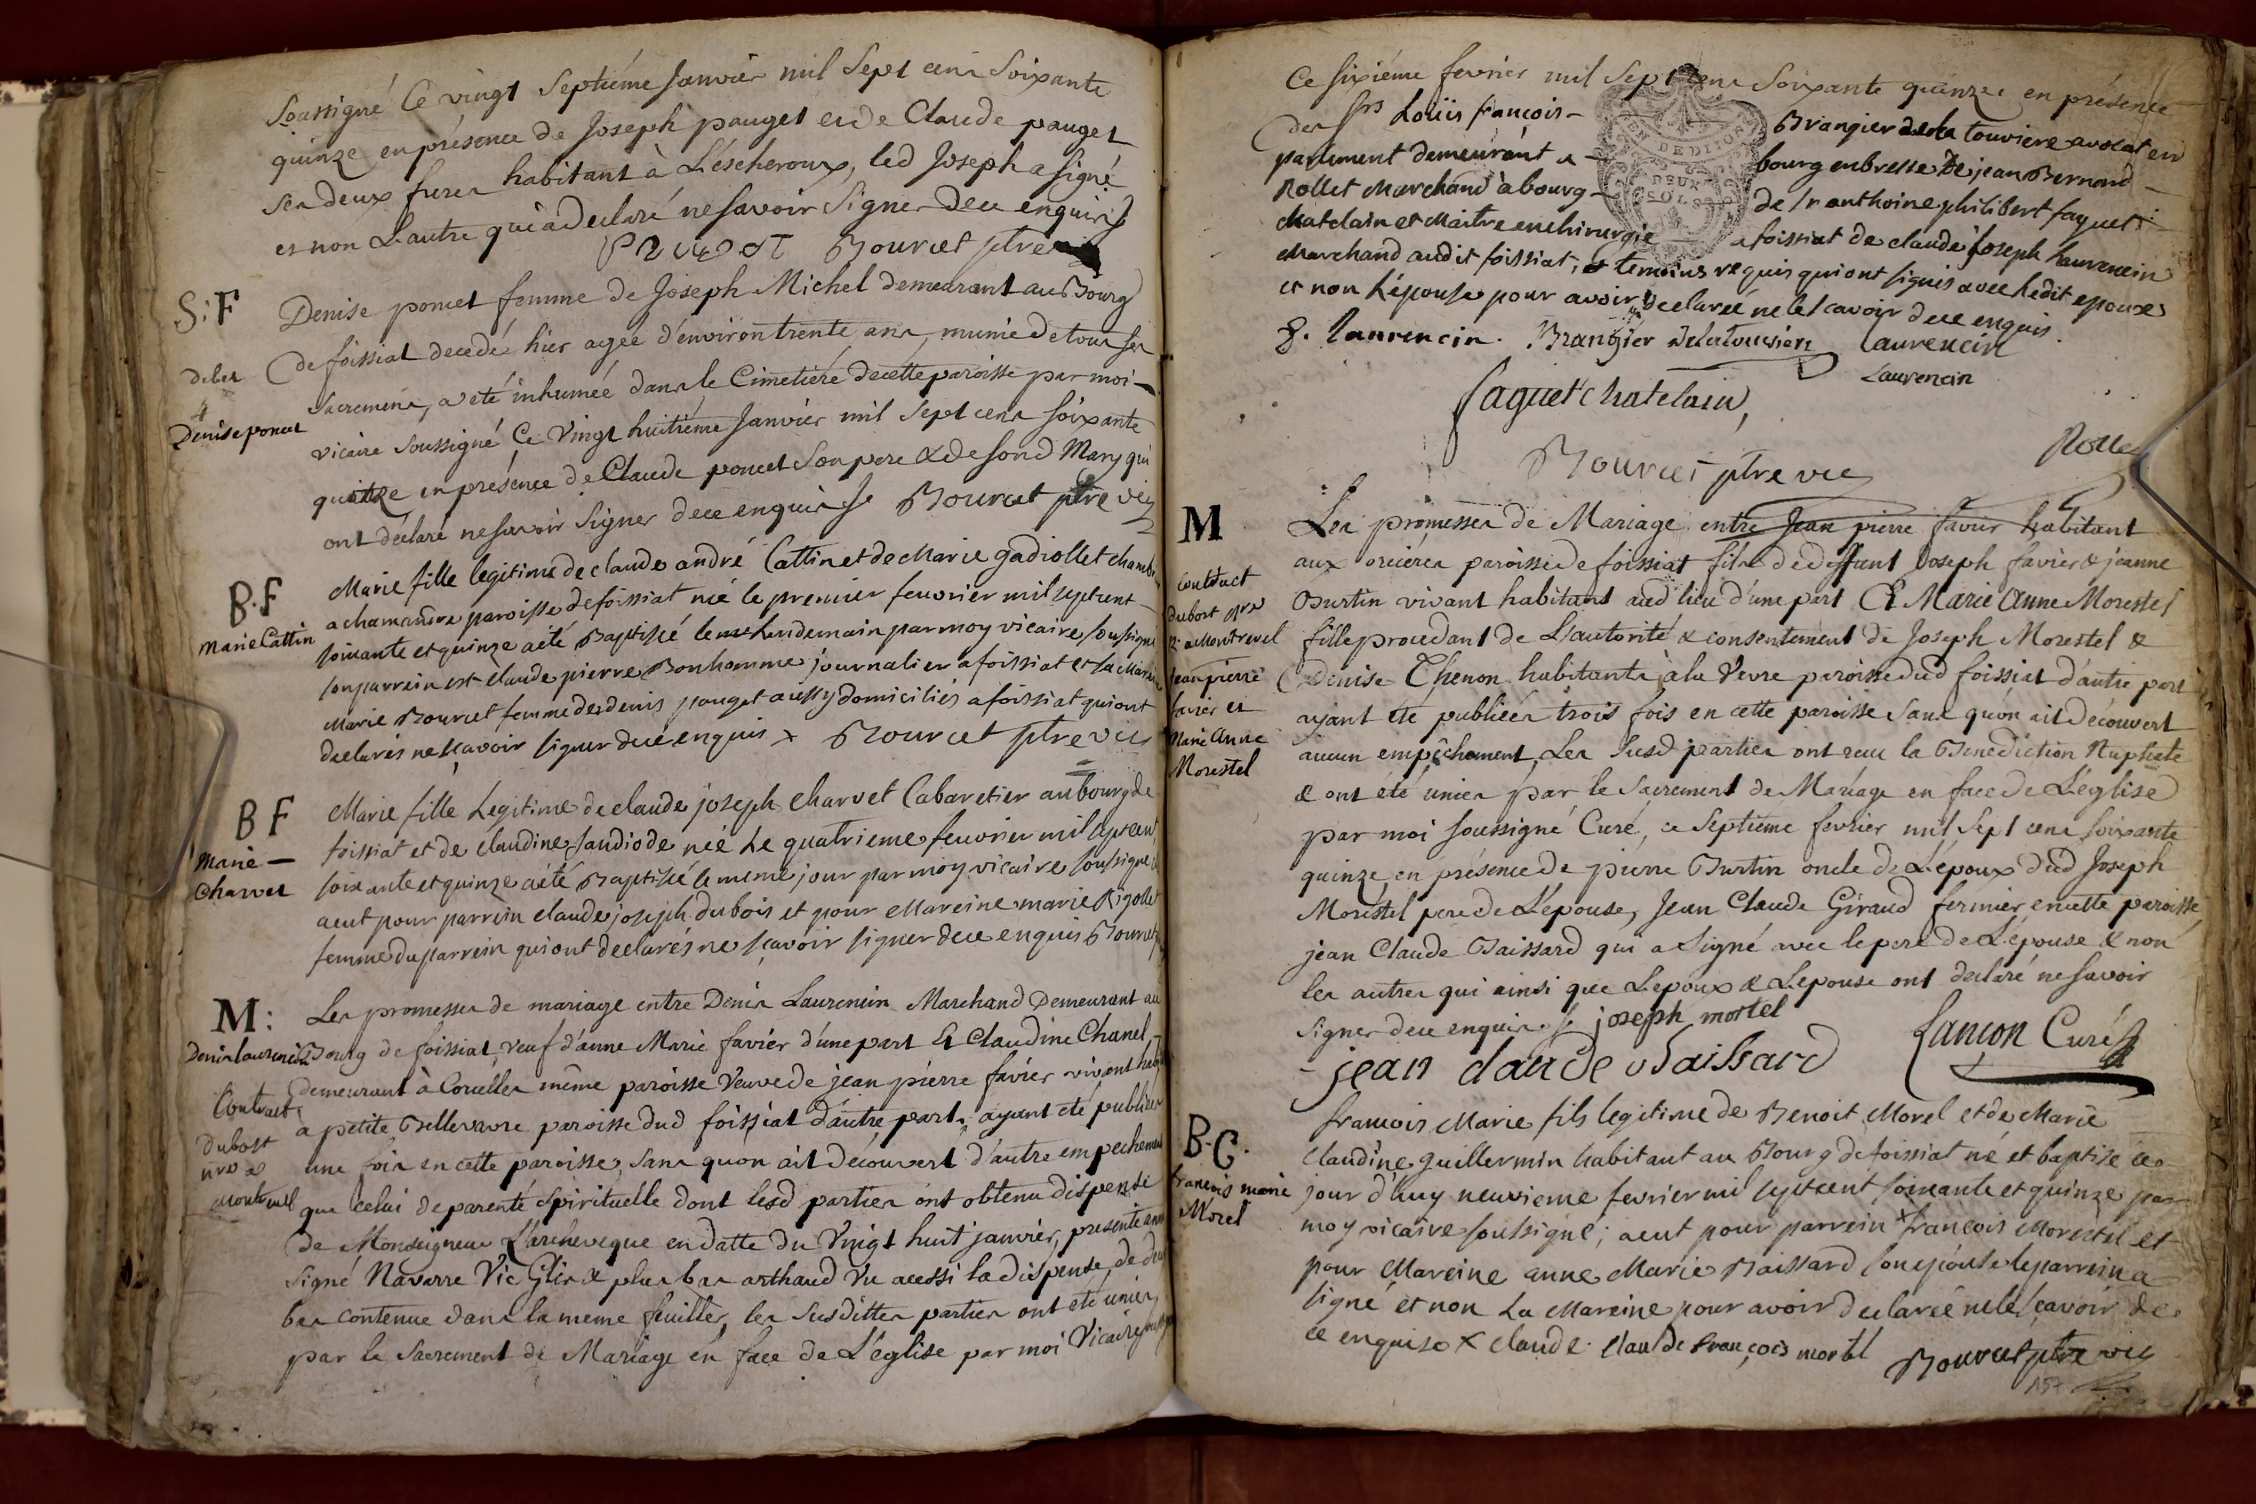 soussigné Ce vingt Septiéme Janvier mil Sept cens Soixante
quinze en présence de Joseph pauget et de Claude pauget
ses deux freres habitant à L'éscheroux, led Joseph a signé
et non L'autre qui a declaré ne savoir Signer de ce enquis
Bourcet ptre
S: F
Denise poncet femme de Joseph Michel demeurant au Bourg
de foissiat decedé hier agée d'environ trente ans, munie de tous ses
Sacremens, a été inhumée dans le Cimetiére de cette paroisse par moi
Denise poncet
vicaire soussigné Ce Vingt huitiéme Janvier mil Sept cens soixante
quinze en présence de Claude poncet Son pere & de son d Mary qui
ont déclaré ne savoir Signer de ce enquis Bourcet ptre vic
B. F
Marie Cattin
Marie fille legitime de claude andré Cattin et de Marie gadiollet
a chamandre paroisse de foissiat née le premier feuvrier mil sept cent
soixante et quinze a été Baptisée le lendemain par moy vicaire soussigné
son parrein est claude pierre Bonhomme journalier a foissiat et sa Mareine
Marie Bourcet femme de denis pauget aussy domiciliés a foissiat qui ont
declarés ne sçavoir signer de ce enquis x Bourcet ptre vic
B F
Marie
Charvet
Marie fille Legitime de claude joseph charvet Cabaretier au bourg de
foissiat et de claudine née Le quatrieme feuvrier mil sept cent
soixante et quinze a été Baptisée le meme jour par moy vicaire soussigné
a eut pour parrein claude joseph dubois et pour Mareine marie Rigollet
femme du parrein qui ont declarés ne sçavoir signer de ce enquis Bourcet
M:
Denis laurencin
Contract
Dubost
nre a
Montrevel
Les promesses de mariage entre Denis Laurencin Marchand Demeurant au
Bourg de foissiat, veuf d'anne Marie favier d'une part Et Claudine Chanel
demeurant à Corcelles même paroisse Veuve de jean pierre favier vivant
a petite Bellevavre paroisse dud foissiat d'autre part, ayant été publiées
une fois en cette paroisse, Sans quon ait découvert d'autre empechement
que celui de parenté Spirituelle dont lesd parties ont obtenu dispense
de Monseigneur L'archeveque en datte du Vingt huit janvier, presente année
signé Navarre Vic Gl & plus bas arthaud Vu aussi la dispense de deux
bas contenue dans la meme feuille, les Susdittes parties ont été unies
par le Sacrement de Mariage en face de L'église par moi Vicaire
Ce sixiéme fevrier mil Sept cens Soixante quinze en présence
des srs Loüis françois Brangier de la touviere avocat en
parlement demeurant a bourg en bresse de jean Bernard
Rollet Marchand à bourg de sr anthoine philibert faguet
chatelain et Maitre en chirurgie a foissiat de claude joseph Laurencin
Marchand audit foissiat, temoins requis qui ont signés avec ledit epoux
et non L'épouse pour avoir declareé ne le scavoir de ce enquis.
Laurencin. Brangier delatouviere Laurencin
Laurencin
faguet chatelain,
Rollet
Bourcet ptre vic
M
Contract
dubost
a Montrevel
Jean pierre
favier et
Marie Anne
Morestel
Les promesses de Mariage entre Jean pierre favier habitant
aux orcieres paroisse de foissiat fils de deffunt Joseph favier & jeanne
Burtin vivant habitans aud lieu d'une part Et Marie Anne Morestel
fille procedant de L'autorité & consentement de Joseph Morestel &
Denise Thenon habitants à la Vevre paroisse dud foissiat d'autre part
ayant été publiées trois fois en cette paroisse sans qu'on ait découvert
aucun empêchement, Les Susd parties ont recu la Benediction Nuptiale
& ont été unies par le Sacrement de Mariage en face de L'église
par moi soussigné Curé, ce Septieme fevrier mil Sept cens soixante
quinze, en présence de pierre Burtin oncle de L'époux dud Joseph
Morestel pere de L'epouse, Jean Claude Giraud fermier en cette paroisse
jean Claude Baissard qui a Signé avec le pere de L'epouse & non
les autres qui ainsi que L'epoux & L'epouse ont declaré ne savoir
signer de ce enquis. joseph mortel
jean claude Baissard
Lançon Curé
B. G.
francois marie
Morel
francois Marie fils legitime de Benoit Morel et de Marie
claudine guillermin habitant au Bourg de foissiat né et baptisé ce
jour d'huy neuvieme fevrier mil sept cent soixante et quinze par
moy vicaire soussigné; a eut pour parrein x francois Morestel et
pour Mareine anne Marie Baissard son épouse le parrein a
signé et non La Mareine pour avoir declareé ne le sçavoir de
ce enquise x claude. claude françois mortel Bourcet ptre vic